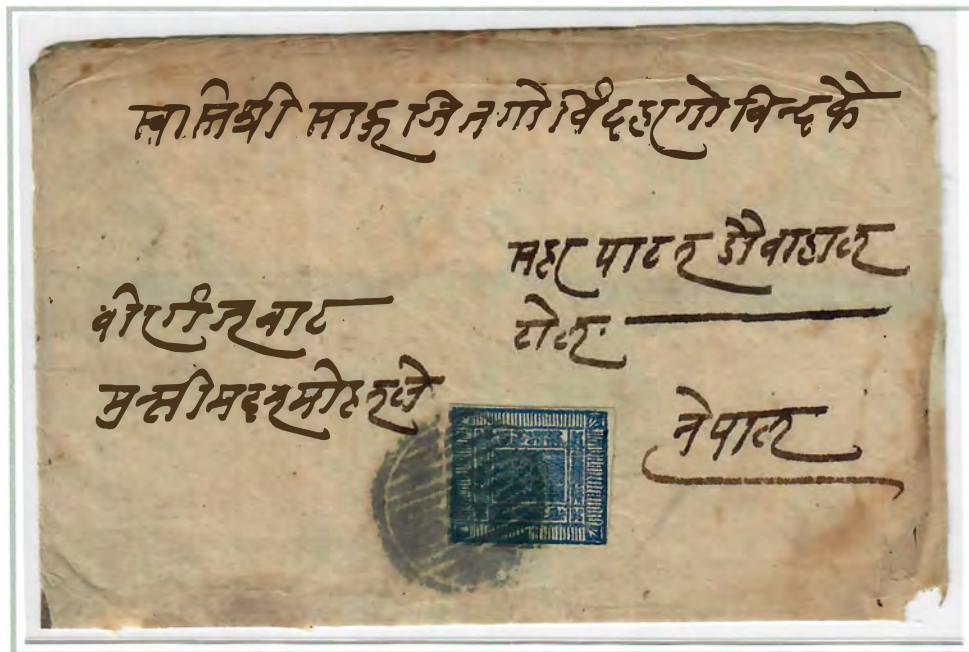 स्वास्तिश्री साहुजित गोविंदहरगोविन्दके
सहर पाटन
टोल
वीरगंज बाट
मुन्सी मदनमोहनले
नेपाल